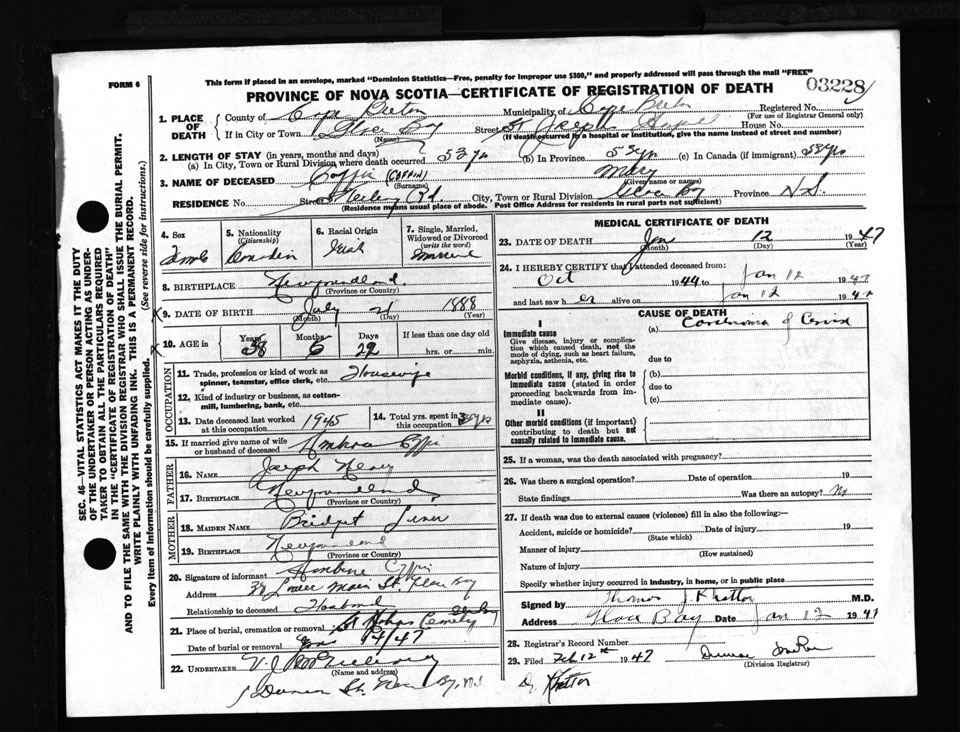 FORM 6
This form if placed in an envelope, marked "Dominion Statistics—Free, penalty for improper use $300," and properly addressed will pass through the mail "FREE"
03228
PROVINCE OF NOVA SCOTIA—CERTIFICATE OF REGISTRATION OF DEATH
SEC. 46—VITAL STATISTICS ACT MAKES IT THE DUTY
OF THE UNDERTAKER OR PERSON ACTING AS UNDER-
TAKER TO OBTAIN ALL THE PARTICULARS REQUIRED
IN THE "CERTIFICATE OF REGISTRATION OF DEATH"
AND TO FILE THE SAME WITH THE DIVISION REGISTRAR WHO SHALL ISSUE THE BURIAL PERMIT.
WRITE PLAINLY WITH UNFADING INK. THIS IS A PERMANENT RECORD.
Every item of information should be carefully supplied. (See reverse side for instructions.)
1. PLACE OF DEATH
County of Cape Breton Municipality of Cape Breton Registered No.
(For use of Registrar General only)
If in City or Town Glace Bay Street St Joseph's House No.
(Name) (If death occurred in a hospital or institution, give the name instead of street and number)
2. LENGTH OF STAY (in years, months and days)
(a) In City, Town or Rural Division where death occurred 53 yrs (b) In Province 53 yrs (c) In Canada (if immigrant) 53 yrs
3. NAME OF DECEASED Coffin (COFFIN) Mary
(Surname) (Given name or names)
RESIDENCE No. Street Rd. City, Town or Rural Division Glace Bay Province N.S.
(Residence means usual place of abode. Post Office Address for residents in rural parts not sufficient)
4. Sex Female
5. Nationality (Citizenship) Canadian
6. Racial Origin Irish
7. Single, Married, Widowed or Divorced (write the word) Married
8. BIRTHPLACE Newfoundland
(Province or Country)
9. DATE OF BIRTH July 21 1888
(Month) (Day) (Year)
10. AGE in Years 58 Months Days 22 If less than one day old hrs. or min.
OCCUPATION
11. Trade, profession or kind of work as spinner, teamster, office clerk, etc. Housewife
12. Kind of industry or business, as cotton-mill, lumbering, bank, etc.
13. Date deceased last worked at this occupation 1945
14. Total yrs. spent in this occupation yrs
15. If married give name of wife or husband of deceased Ambrose Coffin
FATHER
16. NAME Joseph
17. BIRTHPLACE Newfoundland
(Province or Country)
MOTHER
18. MAIDEN NAME Bridget
19. BIRTHPLACE Newfoundland
(Province or Country)
20. Signature of informant Ambrose Coffin
Address Lower Main St. Glace Bay
Relationship to deceased Husband
21. Place of burial, cremation or removal St Cemetery
Date of burial or removal Jan 14/47
22. UNDERTAKER V.J.
(Name and address)
St. Glace Bay, N.S.
MEDICAL CERTIFICATE OF DEATH
23. DATE OF DEATH Jan 12 1947
(Month) (Day) (Year)
24. I HEREBY CERTIFY that I attended deceased from:
Oct 1944 to Jan 12 1947
and last saw her alive on Jan 12 1947
CAUSE OF DEATH
I
Immediate cause
Give disease, injury or complication which caused death, not the mode of dying, such as heart failure, asphyxia, asthenia, etc.
(a) Carcinoma of Cervix
due to
Morbid conditions, if any, giving rise to immediate cause (stated in order proceeding backwards from immediate cause).
(b)
due to
(c)
II
Other morbid conditions (if important) contributing to death but not causally related to immediate cause.
25. If a woman, was the death associated with pregnancy?
26. Was there a surgical operation? Date of operation 19
State findings Was there an autopsy? No
27. If death was due to external causes (violence) fill in also the following:—
Accident, suicide or homicide? Date of injury 19
(State which)
Manner of injury
(How sustained)
Nature of injury
Specify whether injury occurred in industry, in home, or in public place
Signed by Thomas J. M.D.
Address Glace Bay Date Jan 12 1947
28. Registrar's Record Number
29. Filed Feb 12th 1947
(Division Registrar)
Dr.